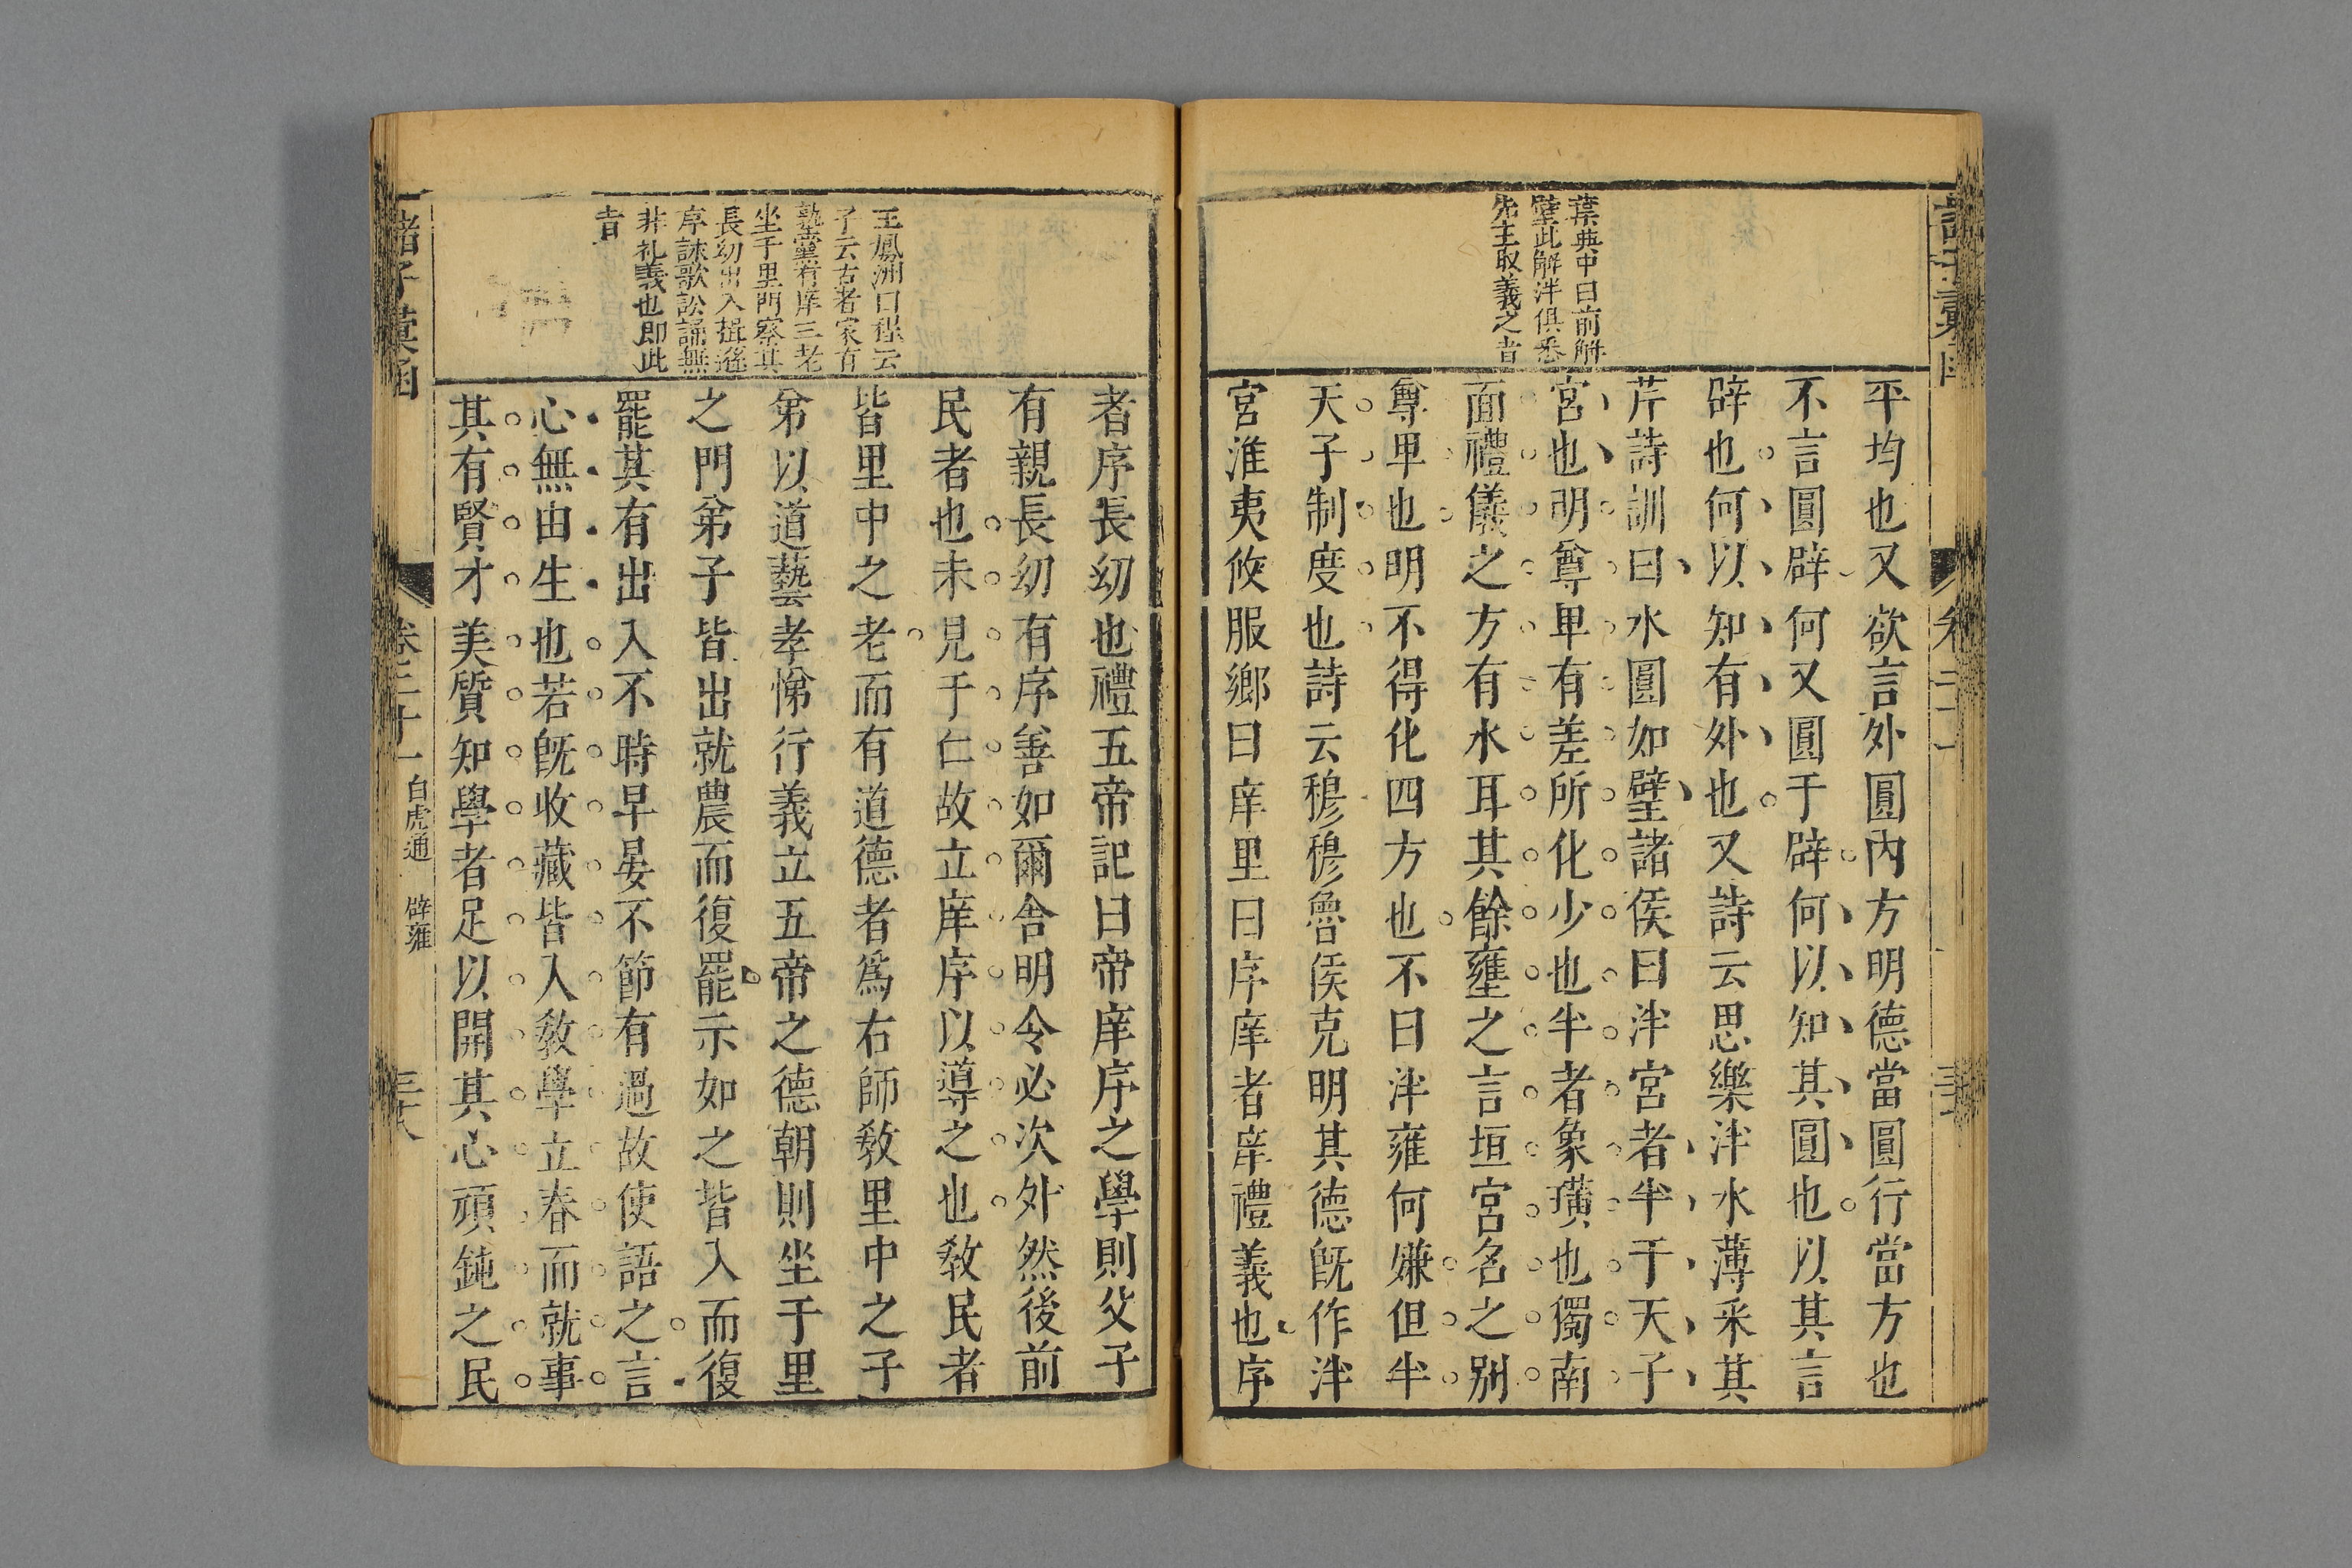 葉典中曰前解
璧此解泮俱悉
先王取義之旨
平均也又欲言外圓內方明德當圓行當方也
不言圓辟何又圓于辟何以知其圓也以其言
辟也何以知有外也又詩云思樂泮水薄采其
芹詩訓曰水圓如璧諸侯曰泮宮者半于天子
宮也明尊卑有差所化少也半者象璜也獨南
面禮儀之方有水耳其餘壅之言垣宮名之別
尊卑也明不得化四方也不曰泮雍何嫌但半
天子制度也詩云穆穆魯侯克明其德旣作泮
宮淮夷攸服鄉曰庠里曰序庠者庠禮義也序
王鳳洲曰程云
子云古者家有
塾黨有庠三老
坐于里門察其
長幼出入揖遜
序誄歌訟誦無
非礼義也即此
旨
者序長幼也禮五帝記曰帝庠序之學則父子
有親長幼有序善如爾舍明令必次外然後前
民者也未見于仁故立庠序以導之也敎民者
皆里中之老而有道德者爲右師敎里中之子
弟以道藝孝悌行義立五帝之德朝則坐于里
之門弟子皆出就農而復罷示如之皆入而復
罷其有出入不時早晏不節有過故使語之言
心無由生也若旣收藏皆入敎學立春而就事
其有賢才美質知學者足以開其心頑鈍之民
諸子彙函
卷二十一
白虎通 辟雍